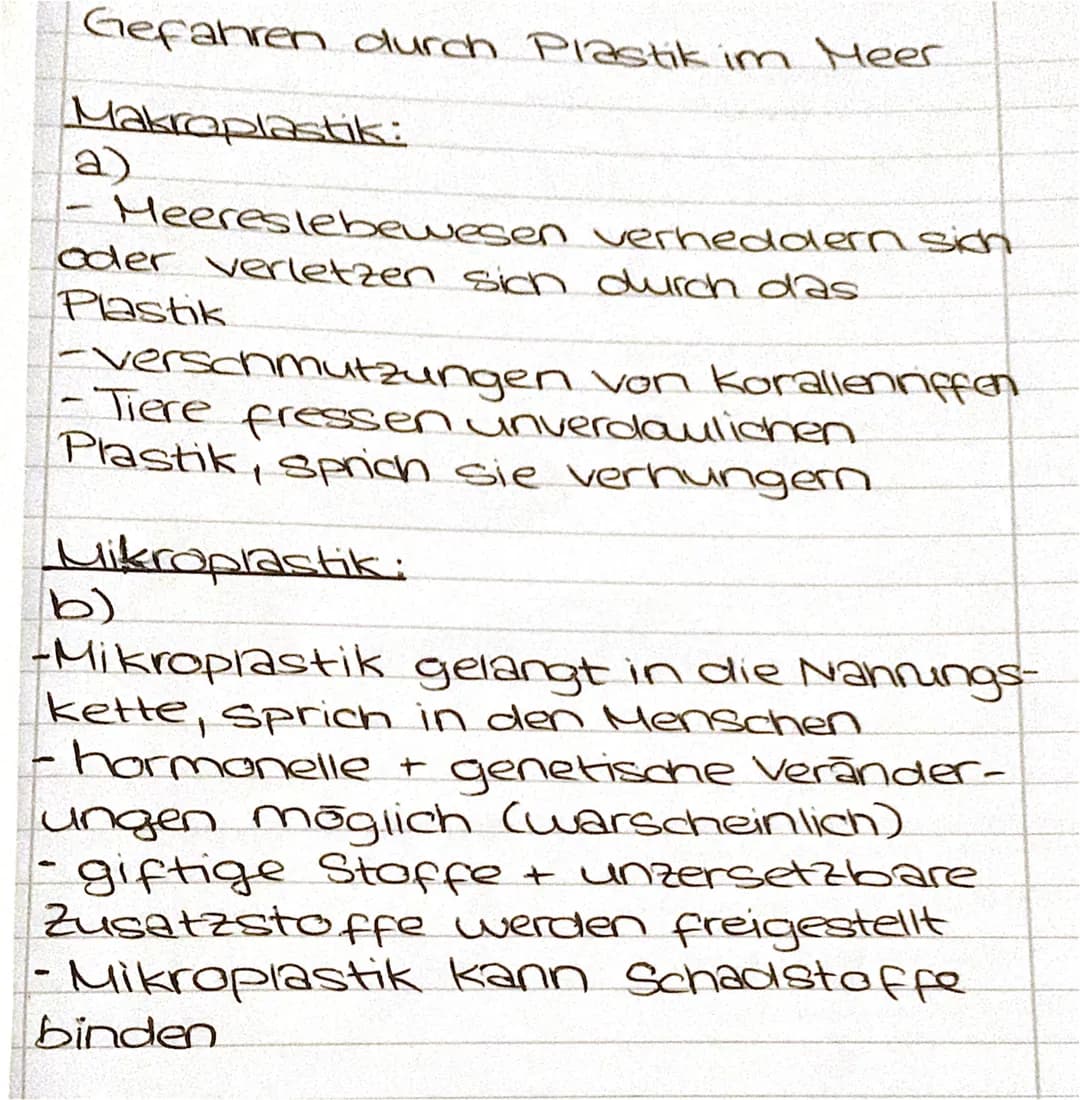 Gefahren durch Plastik im Meer
Makroplastik:
a)
- Meereslebewesen verheddern sich
oder verletzen sich durch das
Plastik
- verschmutzungen von Korallenriffen
- Tiere fressen unverdaulichen
Plastik, sprich sie verhungern
Mikroplastik:
b)
- Mikroplastik gelangt in die Nahrungs-
kette, sprich in den Menschen
- hormonelle + genetische Veränder-
ungen möglich (warscheinlich)
- giftige Stoffe + unzersetzbare
Zusatzstoffe werden freigestellt
- Mikroplastik kann Schadstoffe
binden